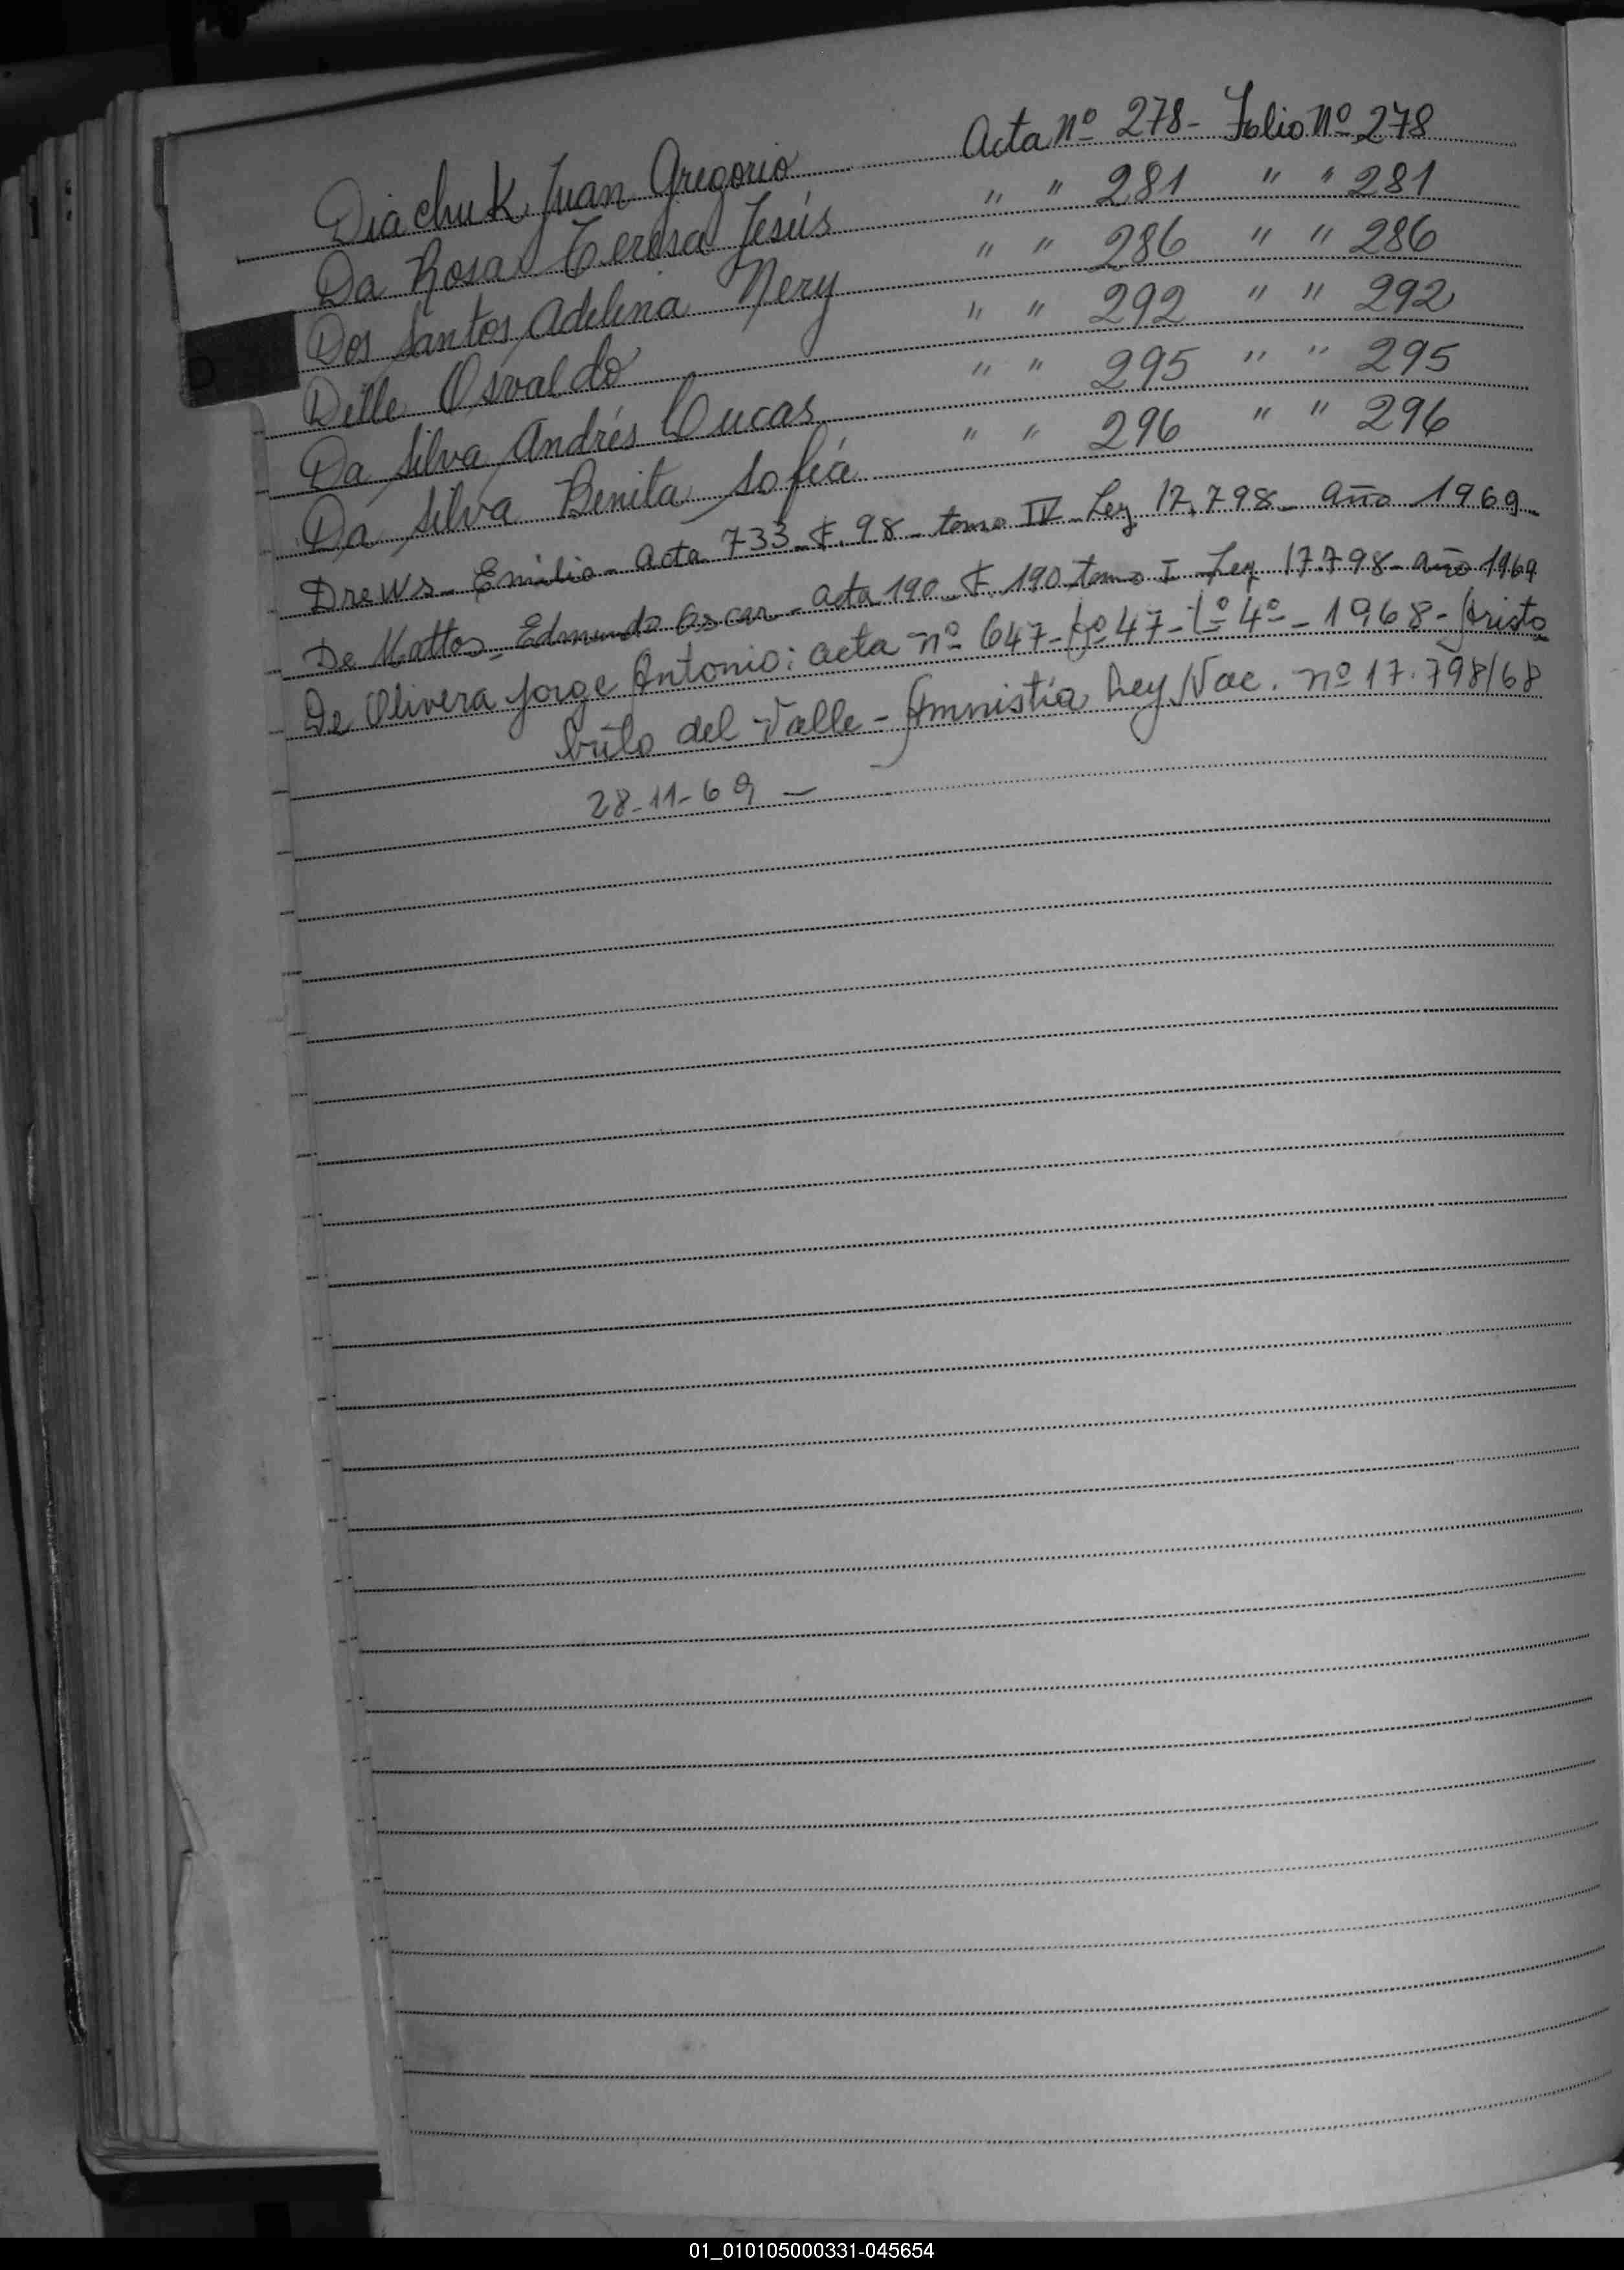 Diachuk Juan Gregorio Acta nº 278 - Folio Nº 278
Da Rosa Teresa Jesús " " 281 " " 281
Dos Santos Adelina Nery " " 286 " " 286
Dille Osvaldo " " 292 " " 292
Da Silva Andrés Lucas " " 295 " " 295
Da Silva Benita Sofía " " 296 " " 296
Drews - Emilio - Acta 733 - F. 98 - tomo IV - Ley 17.798 - año 1969 -
De Mattos - Edmundo Oscar - acta 190 - F. 190 tomo I - Ley 17.798 - año 1969
De Olivera Jorge Antonio: acta nº 647 - Fº 47 - tº 4º - 1968 - Aristó
bulo del Valle - Amnistía Ley Nac. nº 17.798/68
28-11-69 -
01_010105000331-045654